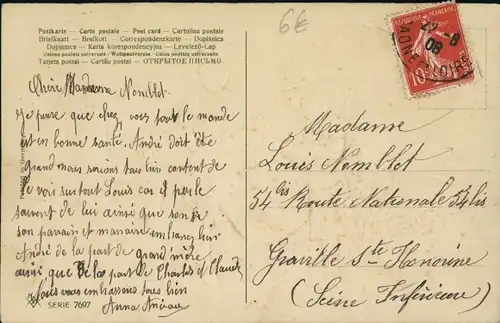 Postkarte - Carte postale - Post card - Cartolina postale
Briefkaart - Brefkort - Correspondenzkarte - Dopisnica
Dopisnice - Karta korespondencyjna - Levelező-Lap
Unione postale universale - Weltpostverein - Union postale universelle
Tarjeta postal - Cartão postal - ОТКРЫТОЕ ПИСЬМО
6€
22-8
08
SAONE-&-LOIRE
10
Chère Madame Nemblet
Je pense que chez vous tout le monde
est en bonne santé. André doit être
grand nous serions tous bien content de
le voir surtout Louis car il parle
souvent de lui ainsi que son
son parrain et marraine embrassez bien
André de la part de grand mère
ainsi que de la part de Charles et Claude
vous embrassons tous bien
Anna
SERIE 7697
Madame
Louis Nemblet
54 bis Route Nationale 54 bis
Graville Ste Honorine
(Seine Inférieure)